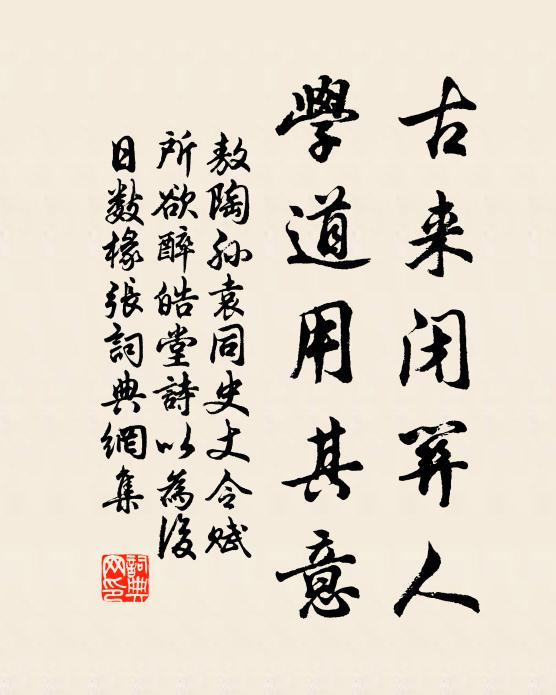 古来闭關人
學道用其意
敖陶孙袁同史丈令赋
所欲醉皓堂詩以為後
日數椽張詞典網集
詞典网印